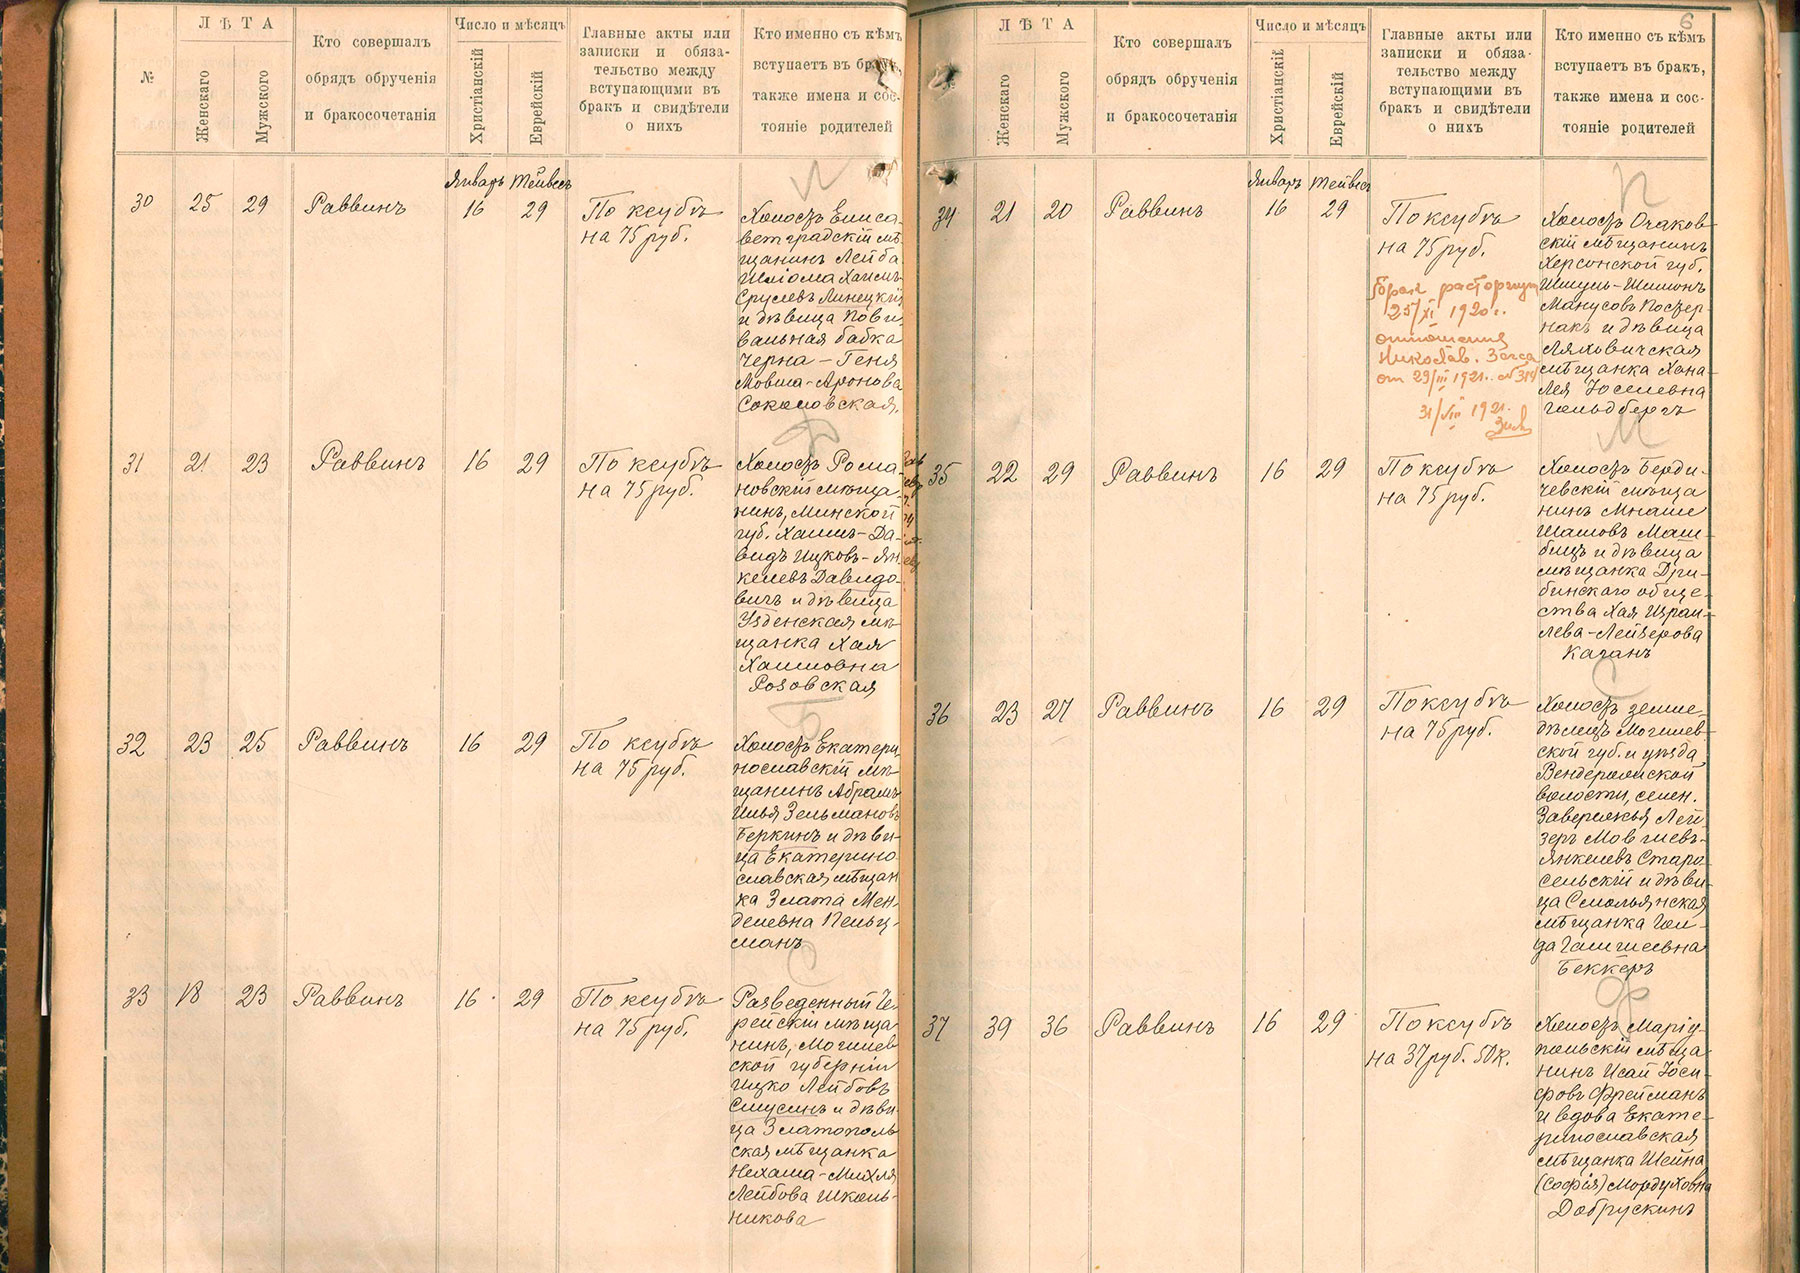 №
ЛѢТА
Женскаго
Мужского
Кто совершалъ
обрядъ обрученія
и бракосочетанія
Число и мѣсяцъ
Христіанскій
Еврейскій
Главные акты или
записки и обяза-
тельство между
вступающими въ
бракъ и свидѣтели
о нихъ
Кто именно съ кѣмъ
вступаетъ въ бракъ,
также имена и сос-
тояніе родителей
Январь Тейвесъ
30 25 29 Раввинъ 16 29
По ксубѣ
на 75 руб.
Холостъ Елиса-
ветградскій мѣ-
щанинъ Лейба
Шліома Хаимъ-
Срулевъ Линецкій
и дѣвица пови-
вальная бабка
Черна-Геня
Мовша-Аронова
Соколовская.
31 21 23 Раввинъ 16 29
По ксубѣ
на 75 руб.
Холостъ Рома-
новскій мѣща-
нинъ, Минской
губ. Хаимъ-Да-
видъ Ицковъ-Ян-
келевъ Давидо-
вичъ и дѣвица
Узденская мѣ-
щанка Хая
Хаимовна
Розовская
32 23 25 Раввинъ 16 29
По ксубѣ
на 75 руб.
Холостъ Екатери-
нославскій мѣ-
щанинъ Абрамъ
Илья Зельмановъ
Беркинъ и дѣви-
ца Екатерино-
славская мѣщан
ка Злата Мен-
делевна Пельц-
манъ
33 18 23 Раввинъ 16 29
По ксубѣ
на 75 руб.
Разведенный Че-
рейскій мѣща
нинъ, Могилев
ской губерніи
Ицко Лейбовъ
Смусинъ и дѣви
ца Златополь
ская мѣщанка
Нехама-Михля
Лейбова Школь-
никова
6
ЛѢТА
Женскаго
Мужского
Кто совершалъ
обрядъ обрученія
и бракосочетанія
Число и мѣсяцъ
Христіанскій
Еврейскій
Главные акты или
записки и обяза-
тельство между
вступающими въ
бракъ и свидѣтели
о нихъ
Кто именно съ кѣмъ
вступаетъ въ бракъ,
также имена и сос-
тояніе родителей
П
Январь Тейвесъ
34 21 20 Раввинъ 16 29
По ксубѣ
на 75 руб.
брак расторгнут
25/XI 1920 г.
отношения
Николаев. Загса
от 29/III 1921 г.
31/VIII 1921.
Холостъ Очаков-
скій мѣщанинъ
Херсонской губ.
Шмуль-Шимонъ
Манусовъ Постер-
накъ и дѣвица
Ляховичская
мѣщанка Хана-
Лея Іоселевна
Гольдбергъ
М
35 22 29 Раввинъ 16 29
По ксубѣ
на 75 руб.
Холостъ Берди-
чевскій мѣща
нинъ Мнаше
Шаловъ Маш-
бицъ и дѣвица
мѣщанка Дри-
бинскаго обще-
ства Хая Израи-
лева-Лейзерова
Каганъ
С
36 23 27 Раввинъ 16 29
По ксубѣ
на 75 руб.
Холостъ земле-
дѣлецъ Могилев-
ской губ. и уѣзда
волости, селен.
Лей-
зеръ Мовшевъ-
Янкелевъ Старо-
сельскій и дѣви-
ца Смольянская
мѣщанка Гол-
да Гамшеевна
Беккеръ
Ф
37 39 36 Раввинъ 16 29
По ксубѣ
на 37 руб. 50 к.
Холостъ Маріу-
польскій мѣща
нинъ Исай Іоси-
фовъ Фрейманъ
и вдова Екате-
ринославская
мѣщанка Шейна
(Софія) Мордуховна
Добрускинъ